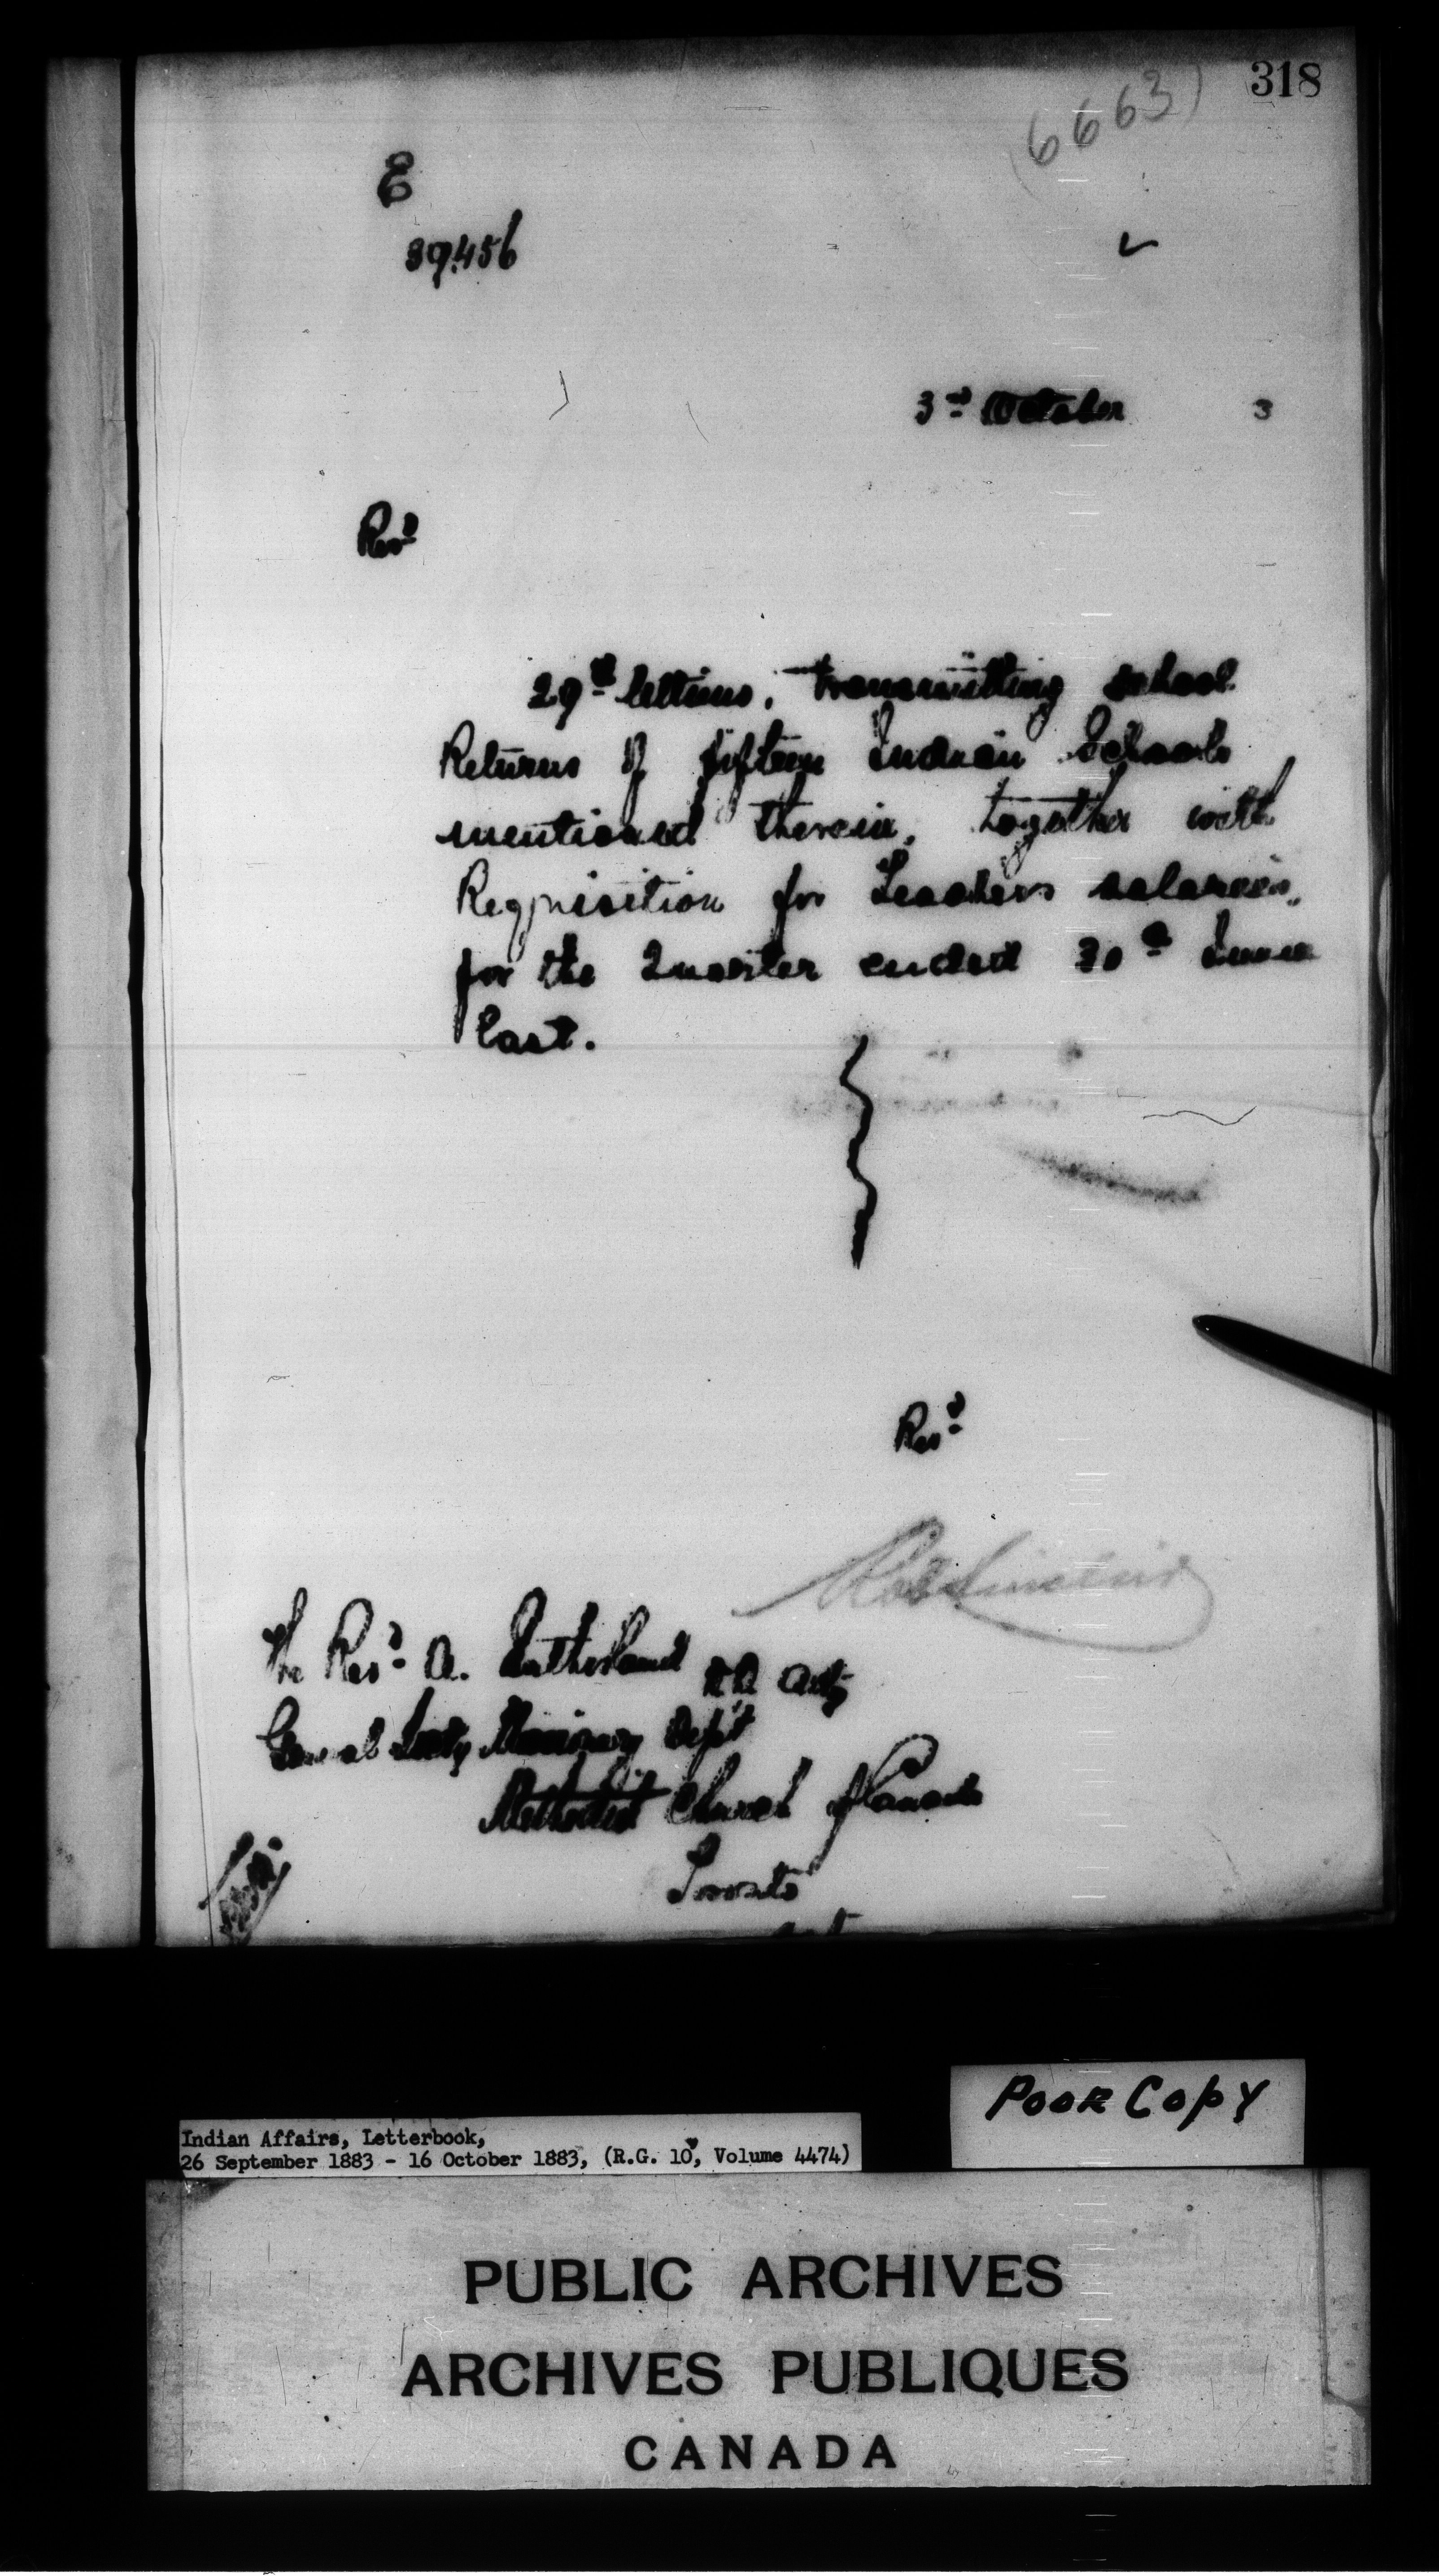 318
(6663)
E
39456
3rd October 3
Revd
29th ultimo, transmitting school
Returns of fifteen Indian Schools
mentioned therein, together with
Requisition for Teachers salaries,
for the Quarter ended 30th June
last.
Revd
Rob Sinclair
The Revd A. Sutherland DD Actg
General Secty Missionary Dep't
Methodist Church of Canada
Toronto
Ont
Poor Copy
Indian Affairs, Letterbook,
26 September 1883 - 16 October 1883, (R.G. 10, Volume 4474)
PUBLIC ARCHIVES
ARCHIVES PUBLIQUES
CANADA